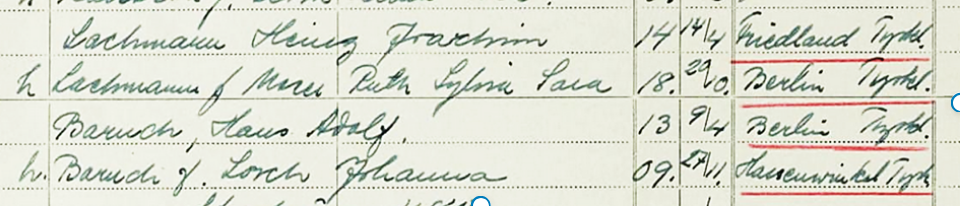 Lachmann Heinz Joachim 14 14/4 Friedland Tyskl.
h Lachmann f Ruth Sylvia Sara 18. 29/10. Berlin Tyskl.
Baruch, Hans Adolf. 13 9/4 Berlin Tyskl.
h. Baruch f. Lorch Johanna 09. 27/11. Tysk